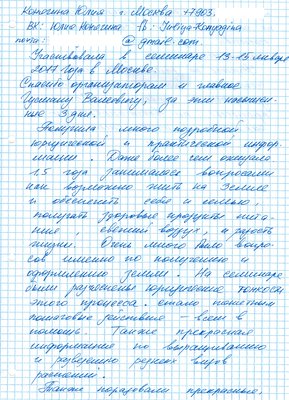 Конягина Юлия г. Москва +7903.
ВК: Юлия Конягина fb: Iuliya Konyagina
почта: @gmail.com
Участвовала в семинаре 13-15 января
2017 года в Москве.
Спасибо организаторам и главное
Валеевичу, за эти насыщен-
ные 3 дня.
Получила много подробной
юридической и практической инфор-
мации. Даже более чем ожидала
1.5 года занималась вопросами
как возможно жить на Земле
и обеспечить себя и семью,
получать здоровые продукты пита-
ния, свежий воздух, и радость
жизни. Очень много было вопро-
сов именно по получению и
оформлению земли. На семинаре
были разъяснены юридические тонкости
этого процесса. Стало понятным
пошаговые действия – всем в
помощь. Также прекрасная
информация по выращиванию
и разведению редких видов
растений.
Также порадовали прекрасные,